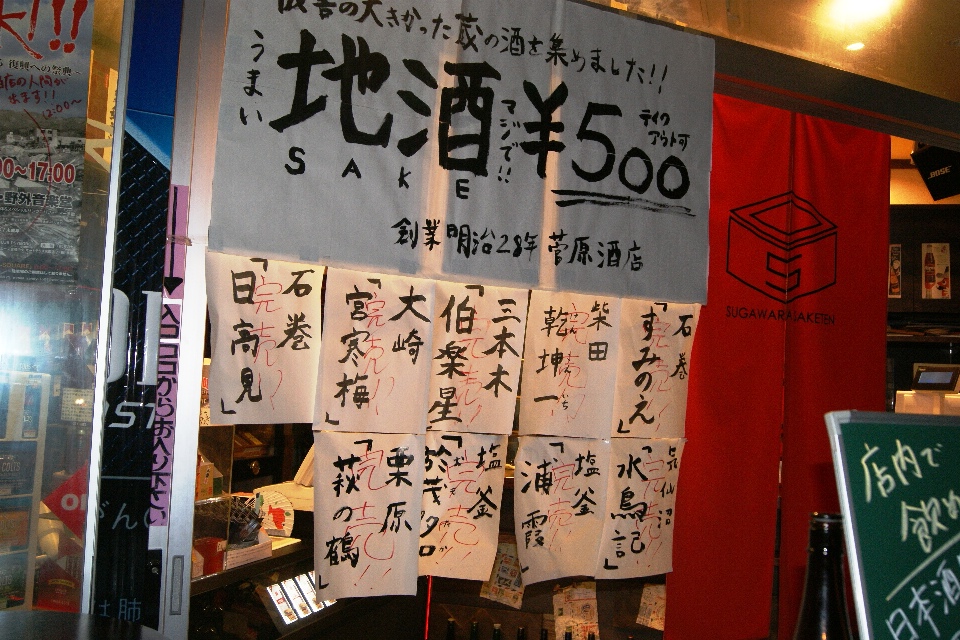 被害の大きかった蔵の酒を集めました!!
うまい
地酒
マジで!!
¥500
テイクアウト可
SAKE
創業明治28年 菅原酒店
石巻
「すみのえ」
完売!
柴田
乾坤一
完売!
三本木
「伯楽星」
完売!!
大崎
「宮寒梅」
完売!!
石巻
「日高見」
完売!
気仙沼
「水鳥記」
完売!
塩釜
「浦霞」
完売!
塩釜
「於茂多加」
完売!
栗原
「萩の鶴」
完売!
SUGAWARASAKETEN
BOSE
入口 ココからお入り下さい
復興への祭典
~17:00
野外音楽堂
COLTS
店内で
飲め
日本酒